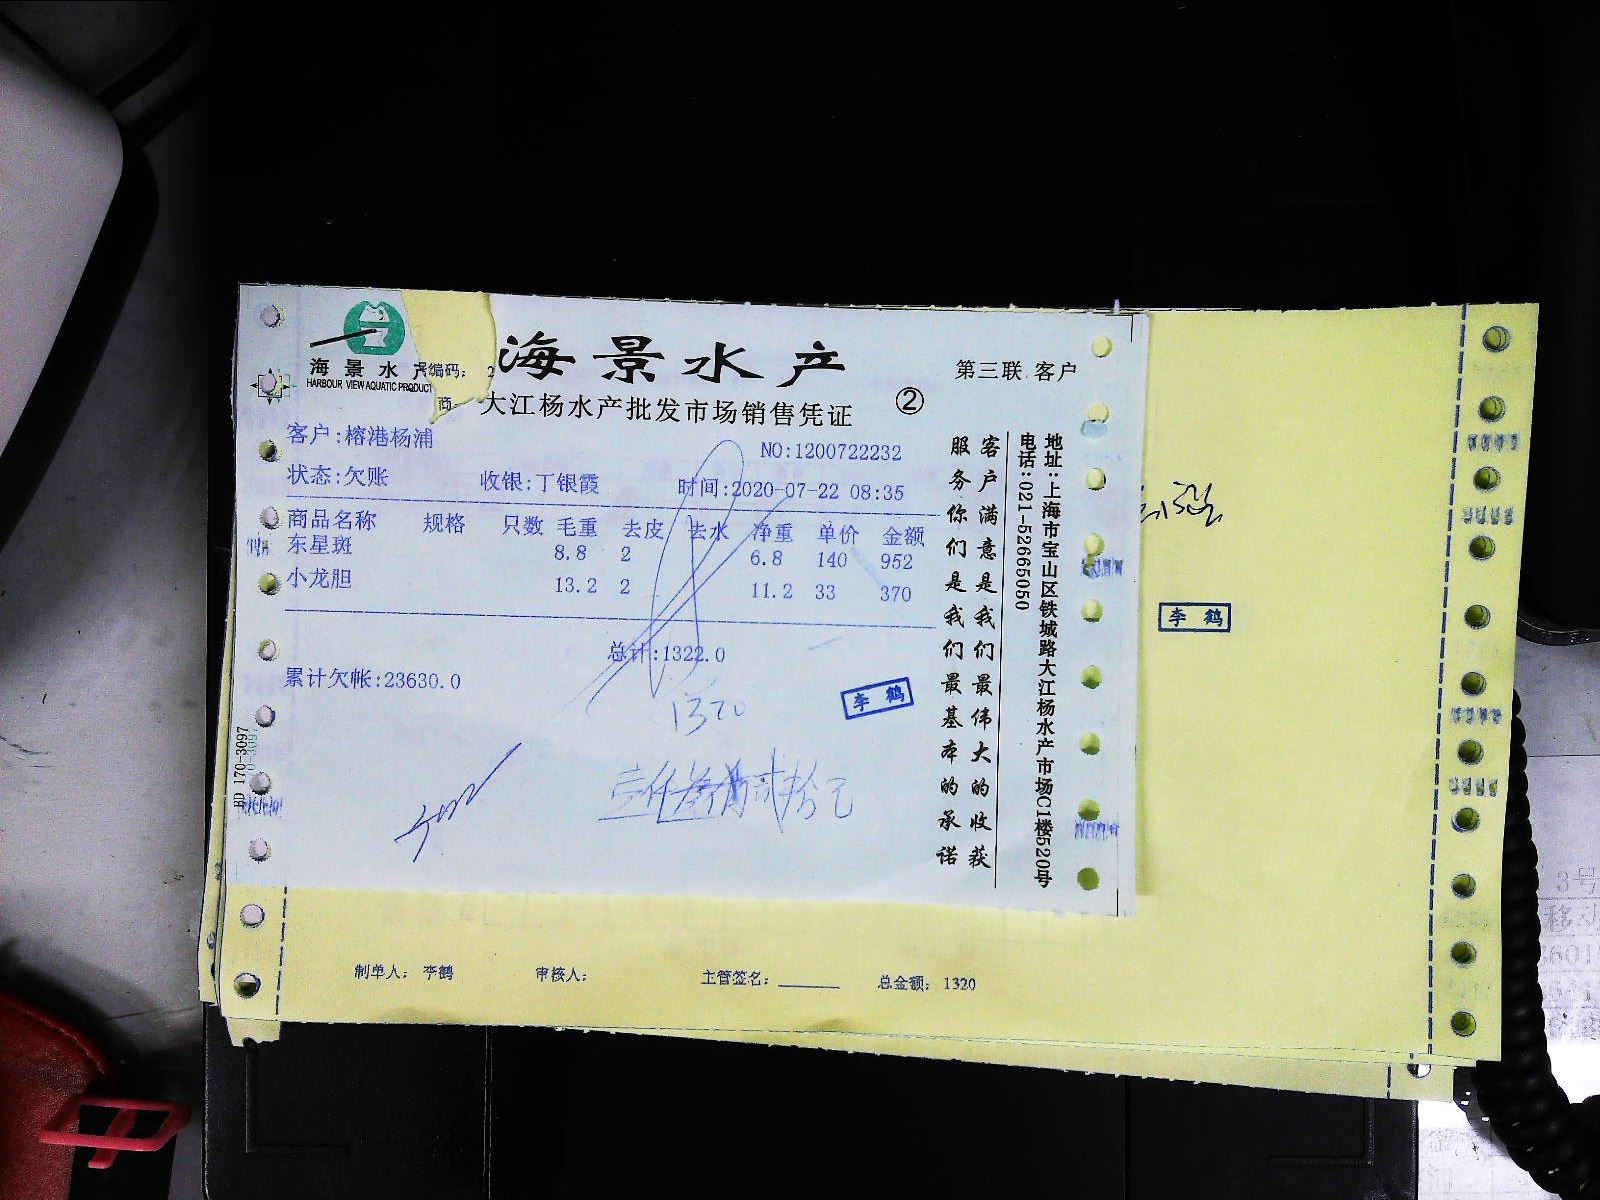 海景水产
HARBOUR VIEW AQUATIC PRODUCT
编码:
商
海景水产
大江杨水产批发市场销售凭证
②
第三联 客户
客户:榕港杨浦
NO:1200722232
状态:欠账 收银:丁银霞 时间:2020-07-22 08:35
商品名称 规格 只数 毛重 去皮 去水 净重 单价 金额
东星斑 8.8 2 6.8 140 952
小龙胆 13.2 2 11.2 33 370
总计:1322.0
累计欠帐:23630.0
1320
李鹤
壹仟叁佰贰拾元
客户满意是我们最伟大的收获
服务你们是我们最基本的承诺
地址:上海市宝山区铁城路大江杨水产市场C1楼520号
电话:021-52665050
HD 170-3097
李鹤
制单人: 李鹤 审核人: 主管签名:______ 总金额: 1320
3号
移动